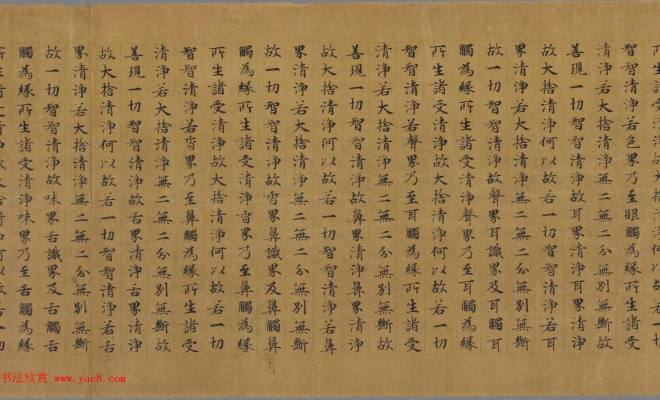 智智清淨若色界乃至眼觸為緣所生諸受
清淨若大捨清淨無二無二分無別無斷故
善現一切智智清淨故耳界清淨耳界清淨
故大捨清淨何以故若一切智智清淨若耳
界清淨若大捨清淨無二無二分無別無斷
故一切智智清淨故聲界耳識界及耳觸耳
觸為緣所生諸受清淨聲界乃至耳觸為緣
所生諸受清淨故大捨清淨何以故若一切
智智清淨若聲界乃至耳觸為緣所生諸受
清淨若大捨清淨無二無二分無別無斷故
善現一切智智清淨故鼻界清淨鼻界清淨
故大捨清淨何以故若一切智智清淨若鼻
界清淨若大捨清淨無二無二分無別無斷
故一切智智清淨故香界鼻識界及鼻觸鼻
觸為緣所生諸受清淨香界乃至鼻觸為緣
所生諸受清淨故大捨清淨何以故若一切
智智清淨若香界乃至鼻觸為緣所生諸受
清淨若大捨清淨無二無二分無別無斷故
善現一切智智清淨故舌界清淨舌界清淨
故大捨清淨何以故若一切智智清淨若舌
界清淨若大捨清淨無二無二分無別無斷
故一切智智清淨故味界舌識界及舌觸舌
觸為緣所生諸受清淨味界乃至舌觸為緣
所生諸受清淨故大捨清淨何以故若一切
书法欣赏 www.yac8.com